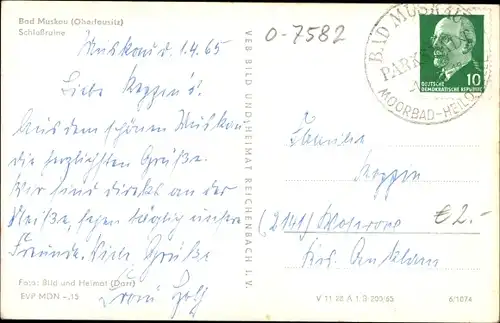 Bad Muskau (Oberlausitz)
Schloßruine
Muskau d. 1.4.65
Liebe Keppin's.
Aus dem schönen Muskau
die herzlichsten Grüße.
Wir sind direkt an der
Neiße, sehen täglich unsere
Freunde. Liebe Grüße
Foto: Bild und Heimat (Darr)
EVP MDN -,15
VEB BILD UND HEIMAT REICHENBACH I. V.
0-7582
BAD MUSKAU
PARKSTADT
MOORBAD-HEILQUELLE
10
DEUTSCHE
DEMOKRATISCHE REPUBLIK
Familie
Keppin
(2141)
€ 2.-
Krs. Anklam
V 11 28 A 1/B 200/65
6/1074